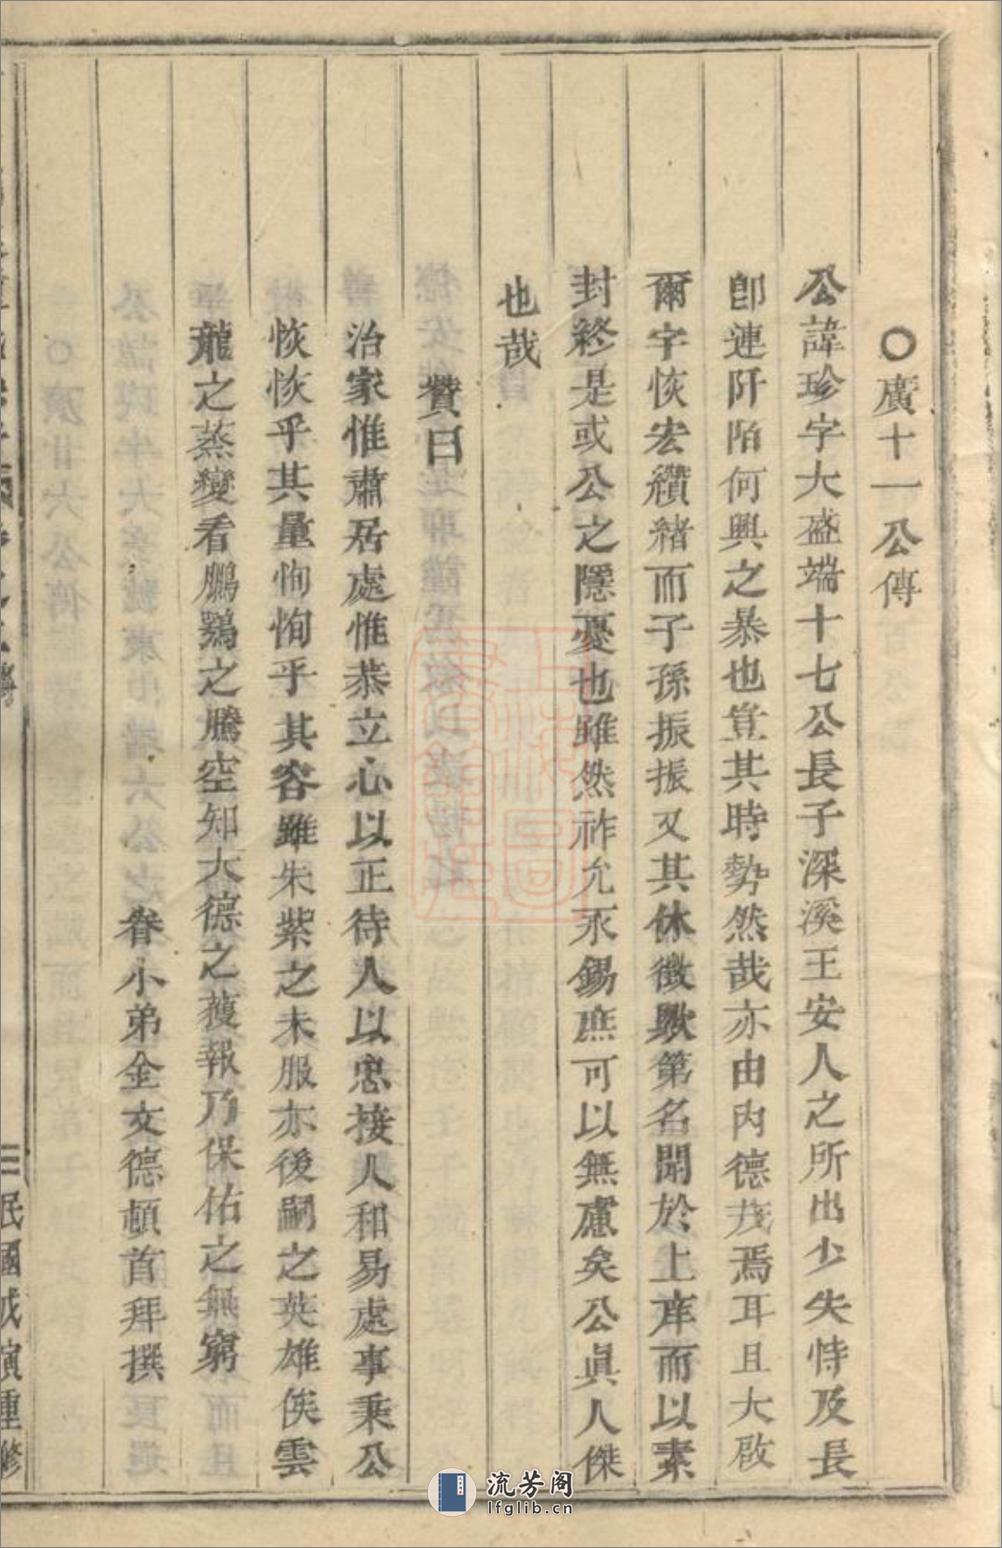 ○廣十一公傳
公諱珍字大盛端十七公長子深溪王安人之所出少失恃及長
卽連阡陌何興之暴也豈其時勢然哉亦由內德茂焉耳且大啟
爾宇恢宏纘緒而子孫振振又其休徵歟第名聞於上庠而以素
封終是或公之隱憂也雖然祚允永錫庶可以無慮矣公眞人傑
也哉
贊曰
治家惟肅居處惟恭立心以正待人以忠接人和易處事秉公
恢恢乎其量恂恂乎其容雖朱紫之未服亦後嗣之英雄俟雲
龍之蒸變看鵬鶚之騰空知大德之獲報乃保佑之無窮
眷小弟金文德頓首拜撰
民國戊寅重修
流芳阁
lfglib.cn